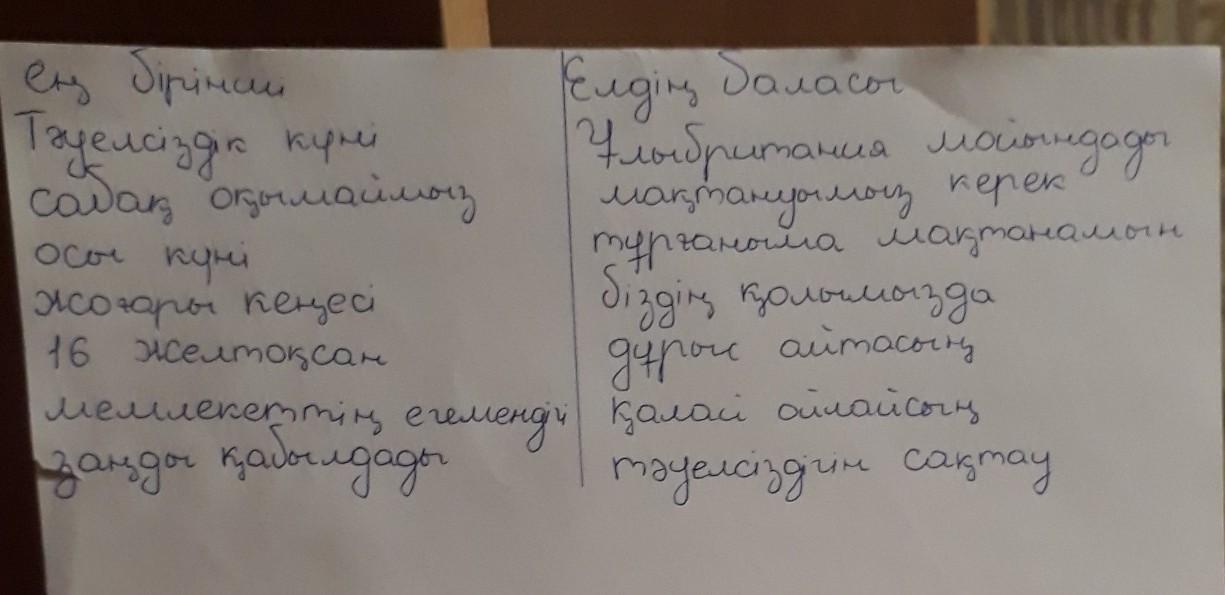 ең бірінші
Тәуелсіздік күні
сабақ оқымаймыз
осы күні
жоғары кеңесі
16 желтоқсан
мемлекеттің егемендігі
заңды қабылдады
Елдің баласы
Ұлыбритания мойындады
мақтануымыз керек
тұрғаныма мақтанамын
біздің қолымызда
дұрыс айтасың
қалай ойлайсың
тәуелсіздігін сақтау